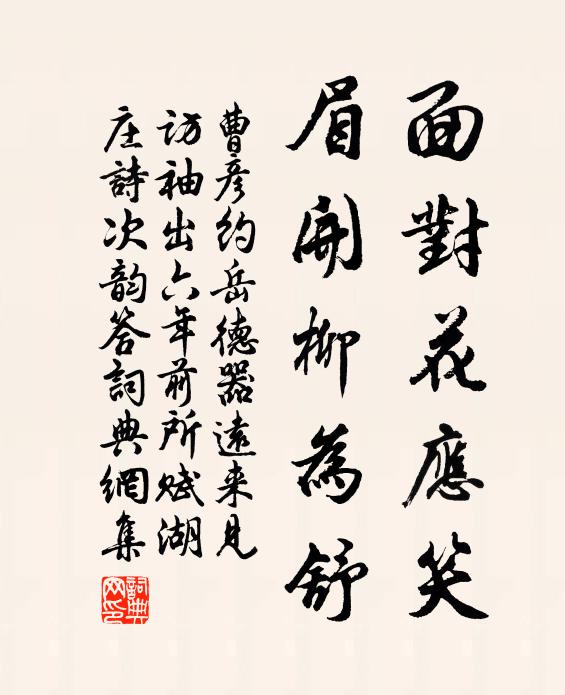 面對花應笑
眉開柳為舒
曹彥約岳德器遠来見
访袖出六年前所赋湖
庄詩次韵答詞典網集
詞典
网印